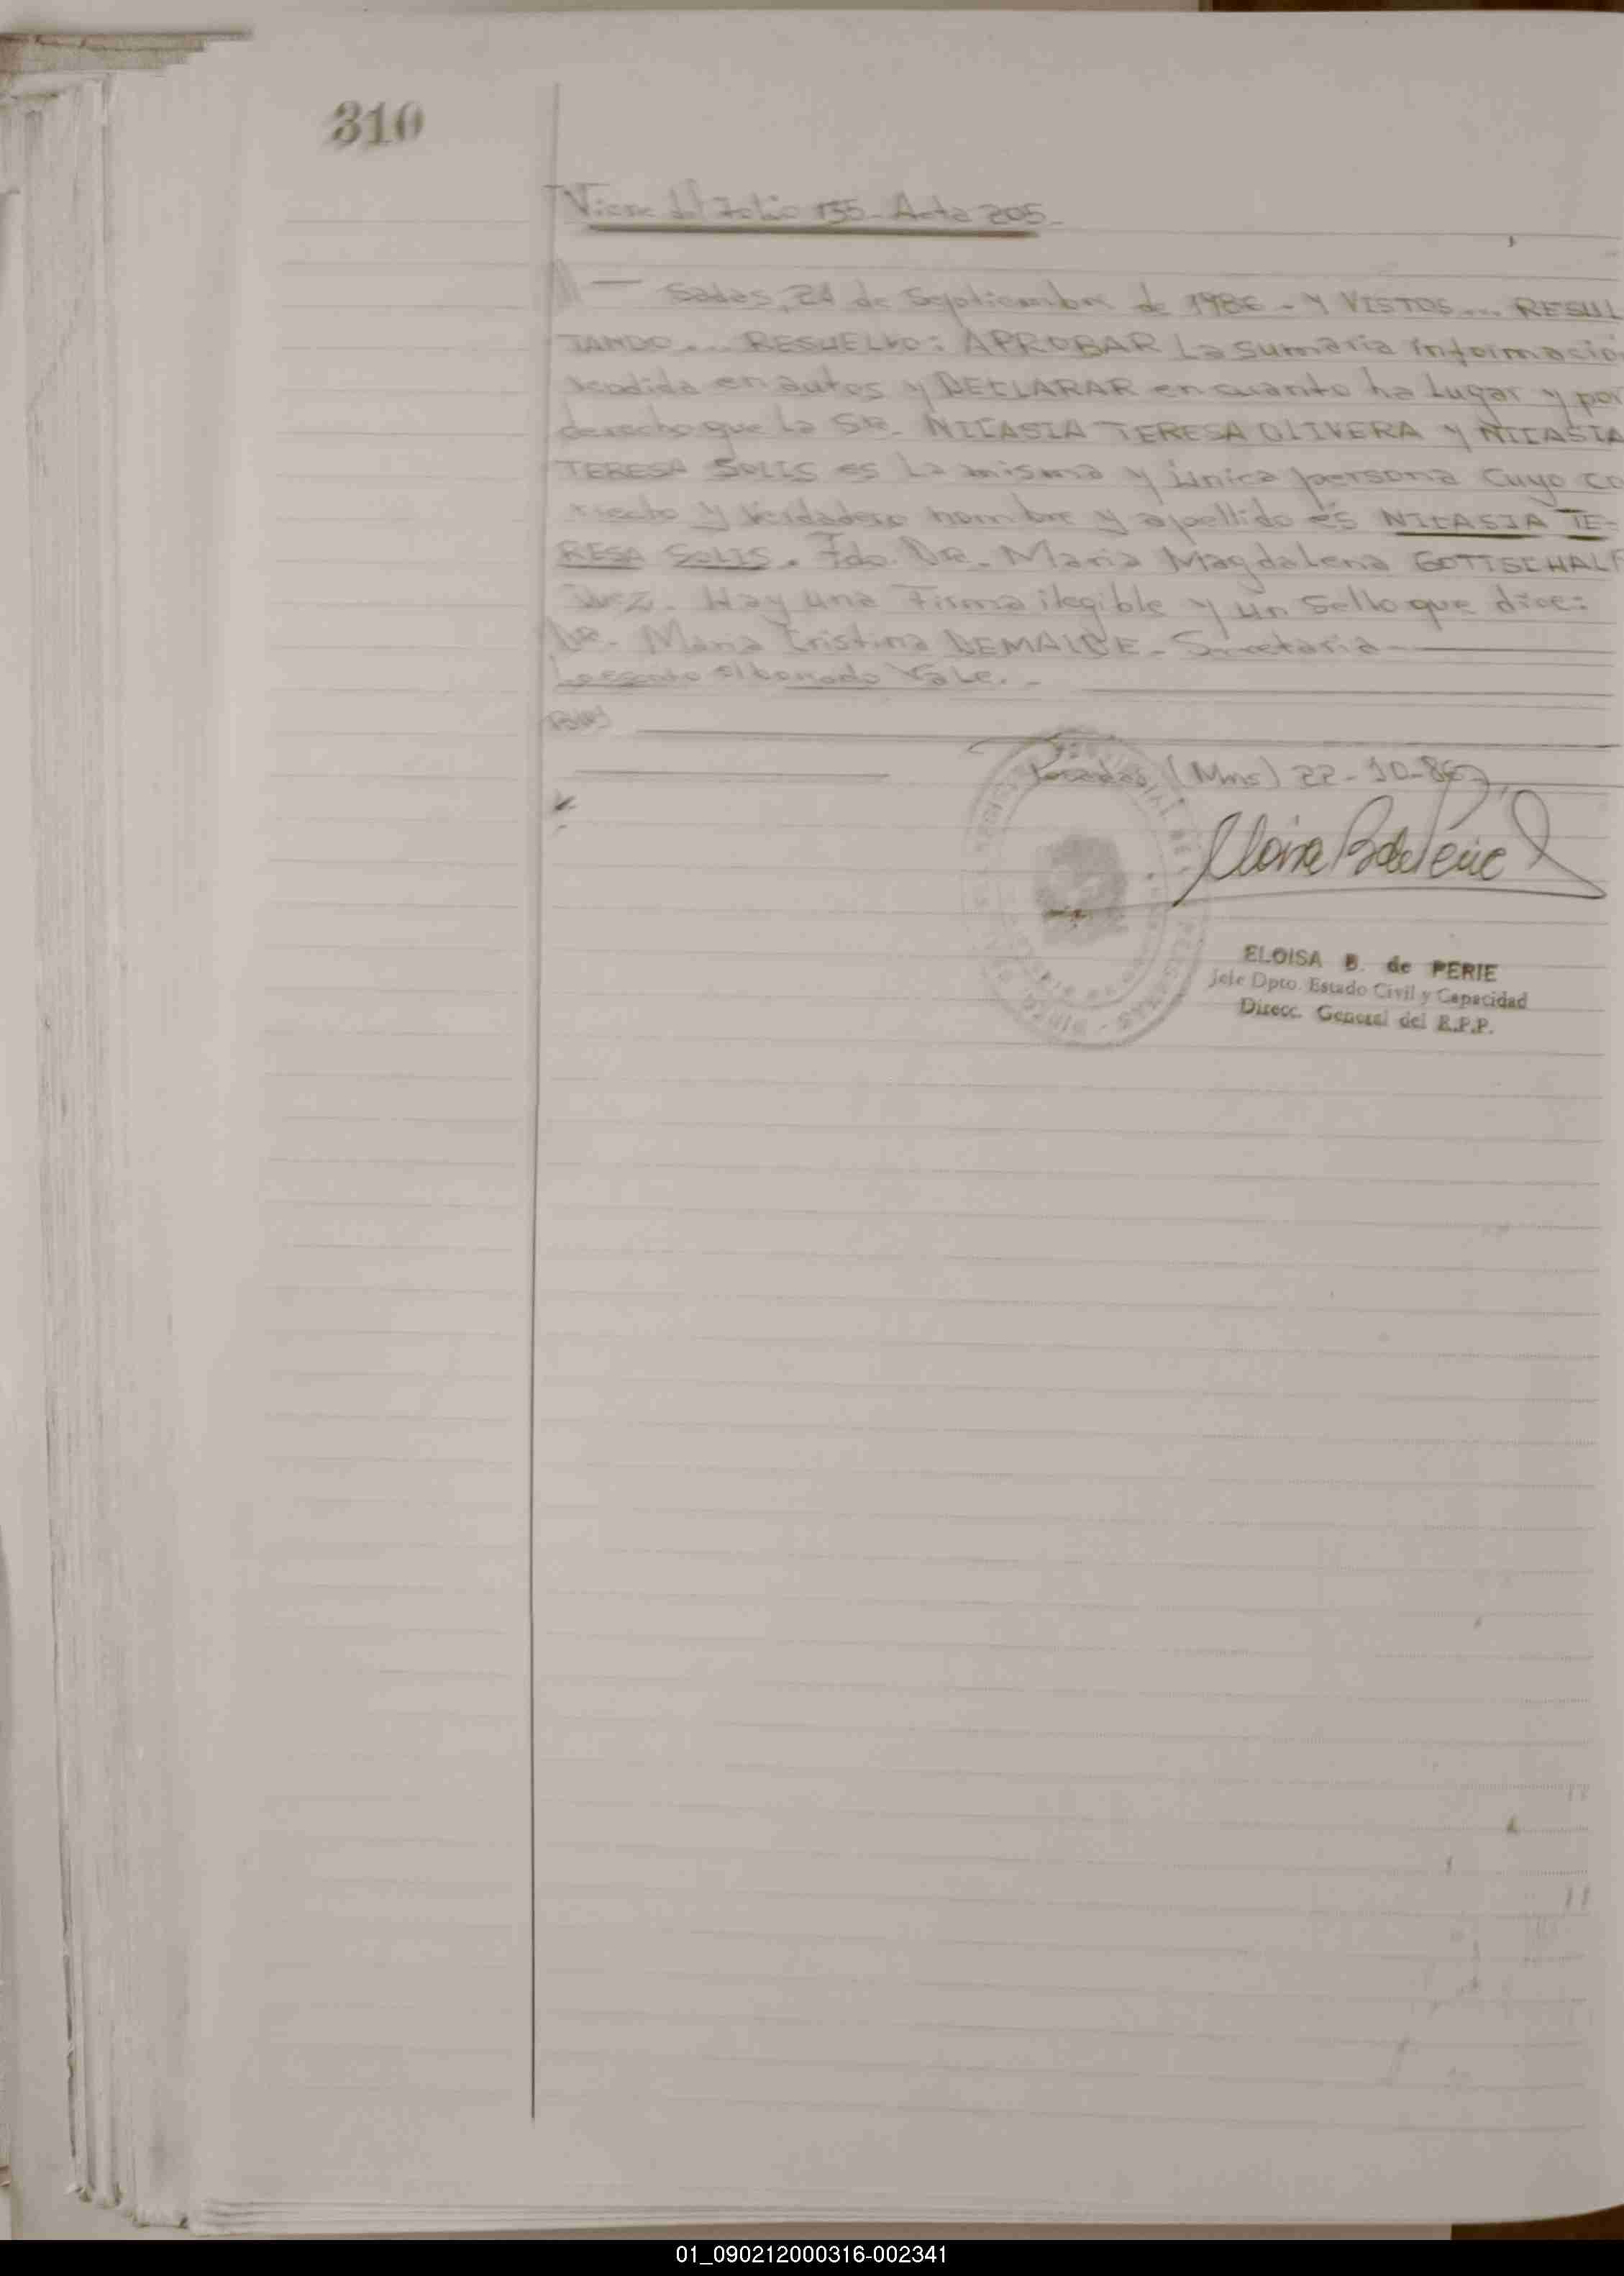 310
Viene del Folio 155 - Acta 205 -
// — sadas, 24 de Septiembre de 1986 - Y VISTOS... RESUL
TANDO... RESUELVO: APROBAR La sumaria informacio
rendida en autos y DECLARAR en cuanto ha Lugar y por
derecho que La SRa. NICASIA TERESA OLIVERA Y NICASIA
TERESA SOLIS es La misma y única persona cuyo co
rrecto y verdadero nombre y apellido es NICASIA TE-
RESA SOLIS. Fdo. DRa. Maria Magdalena GOTTSCHALK
Juez. Hay una Firma ilegible y un Sello que dice:
DRa. Maria Cristina DEMALDE - Secretaria
Lo escrito s/borrado Vale. -
Posadas (Mnes) 22-10-86
ELOISA B. de PERIE
Jefe Dpto. Estado Civil y Capacidad
Direcc. General del R.P.P.
01_090212000316-002341